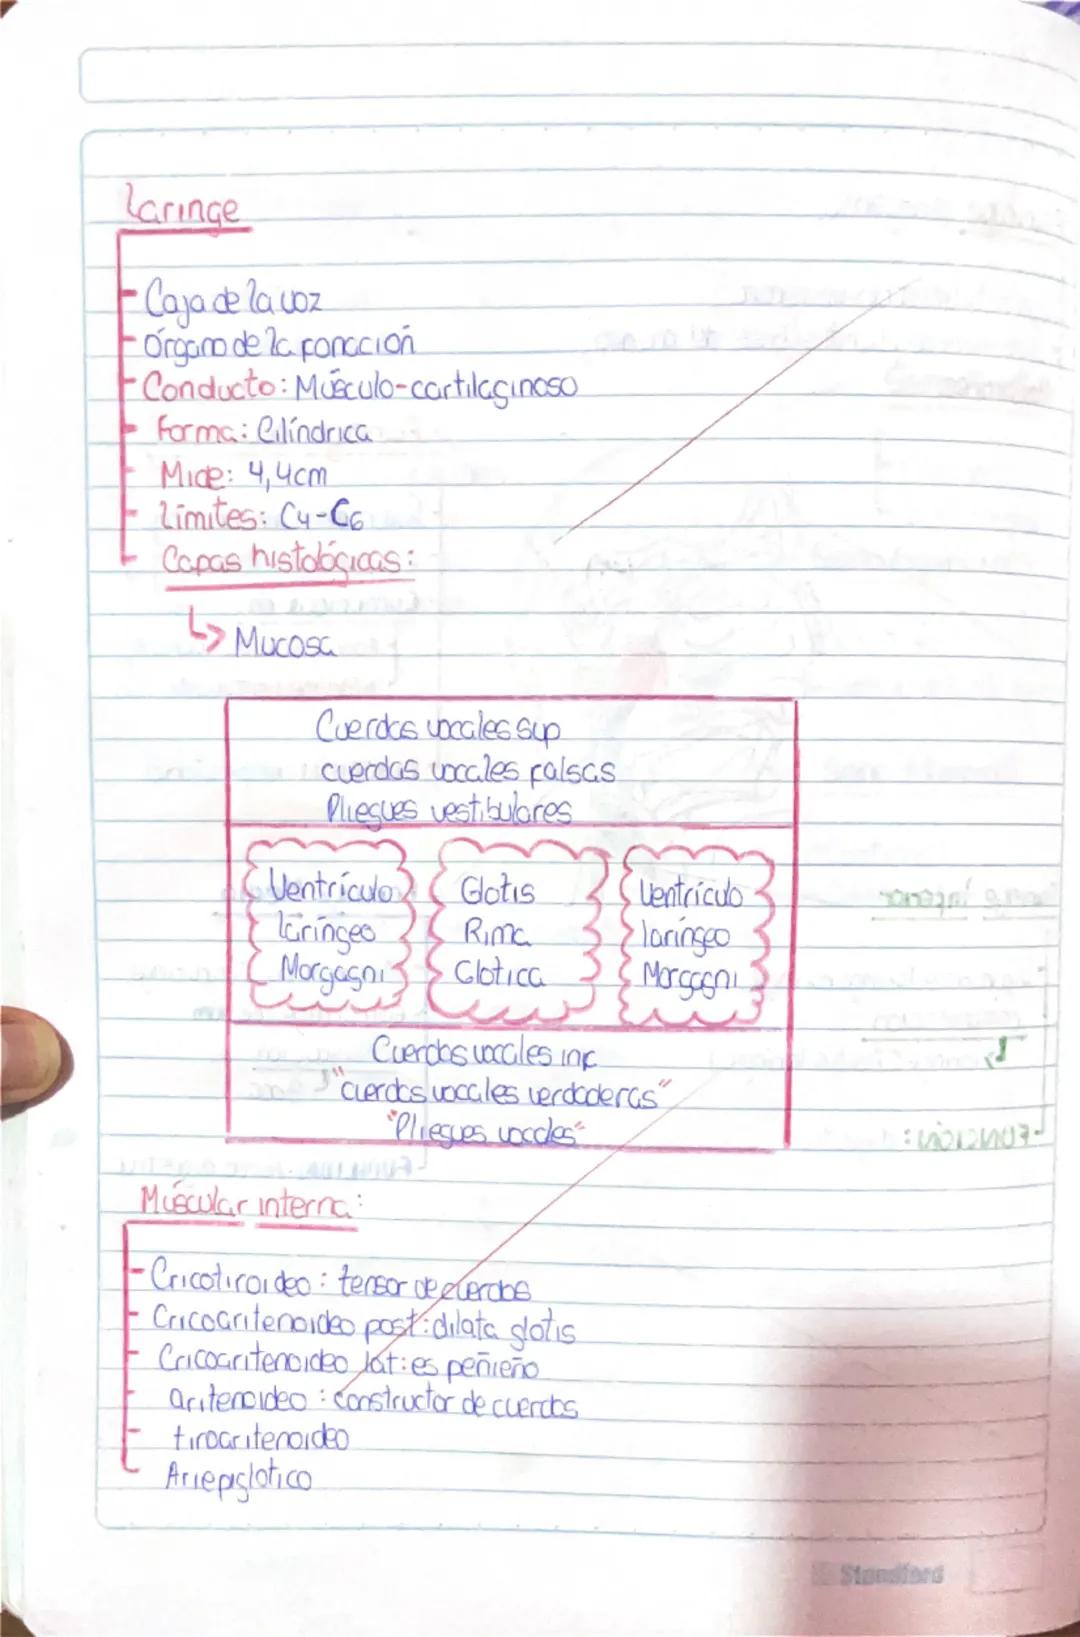 Laringe
- Caja de la voz
- Órgano de la fonación
- Conducto: Músculo-cartilaginoso
- Forma: Cilíndrica
- Mide: 4,4cm
- Límites: C4-C6
- Capas histológicas:
↳ Mucosa
Cuerdas vocales sup
cuerdas vocales falsas
Pliegues vestibulares
Ventrículo laríngeo Morgagni
Glotis Rima Glotica
Ventrículo laríngeo Morgagni
Cuerdas vocales inf
"cuerdas vocales verdaderas"
"Pliegues vocales"
Múscular interna:
- Cricotiroideo: tensor de cuerdas
- Cricoaritenoideo post: dilata glotis
- Cricoaritenoideo lat: es
- aritenoideo: constructor de cuerdas
- tiroaritenoideo
- Ariepiglotico
Standford